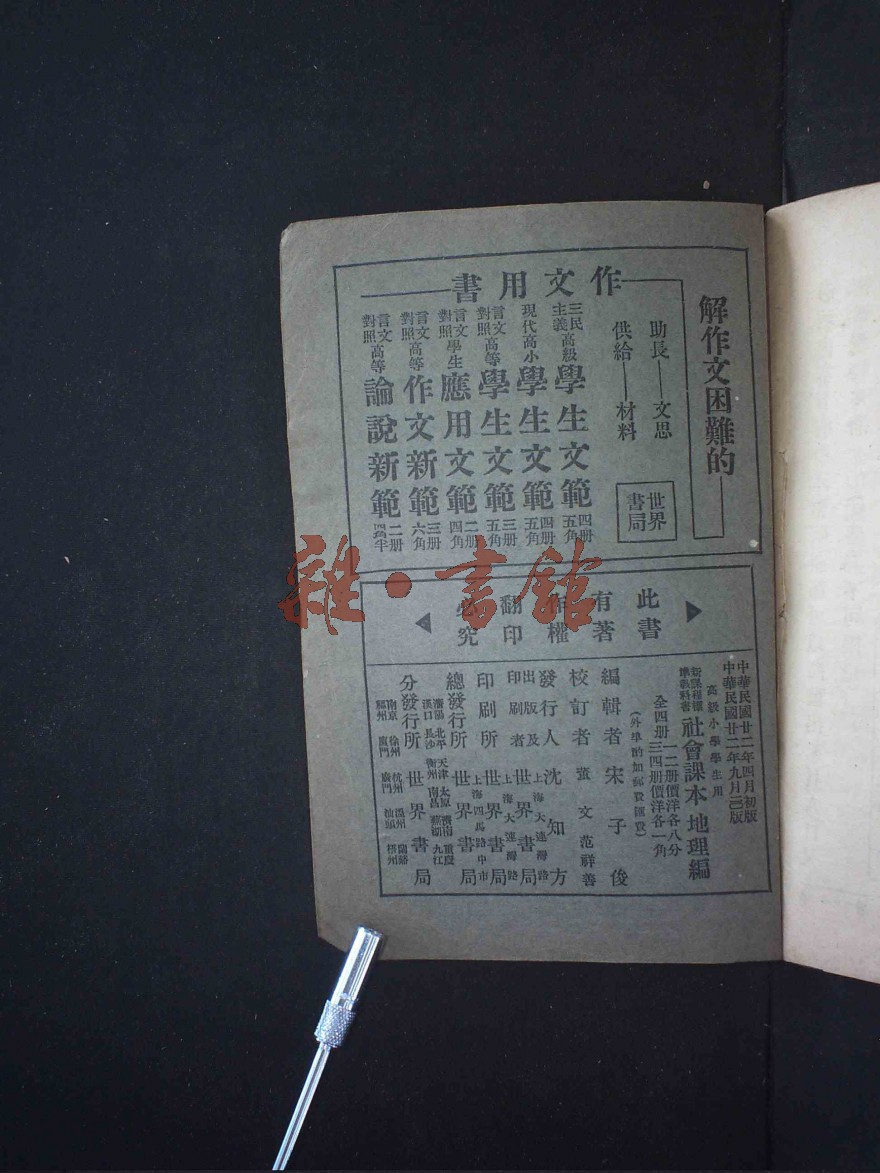 解作文困難的
助長——文思
供給——材料
世界書局
作文用書
三民主義高級學生文範四册五角
現代高小學生文範四册五角
言文對照高等學生文範三册五角
言文對照學生應用文範二册四角
言文對照高等作文新範三册六角
言文對照高等論說新範二册四角半
此書有著作權翻印必究
雜·書館
中華民國廿二年四月初版
中華民國廿二年九月三版
高級小學學生用
新課程標準教科書社會課本地理編
全四册一二册價洋各八分三四册價洋各一角
(外埠酌加郵費匯費)
編輯者宋子俊
校訂者文范祥善
發行人沈知方
出版及印刷者上海大連灣路世界書局
印刷所上海大連灣路世界書局
總發行所上海四馬路中市世界書局
分發行所世界書局
瀋陽北平天津太原濟南重慶
漢口長沙衡州南昌蕪湖九江
南京徐州杭州溫州蘭谿
廈門汕頭梧州